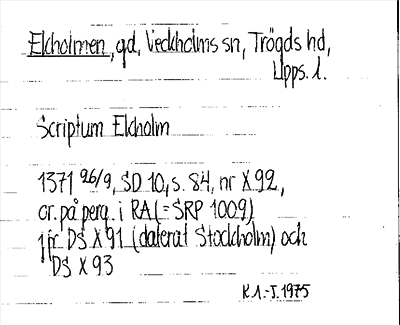 Ekholmen, gd, Veckholms sn, Trögds hd,
Upps. l.
Scriptum Ekholm
1371 26/9, SD 10, s. 84, nr X 92,
or. på perg. i RA (= SRP 1009)
jfr DS X 91 (daterat Stockholm) och
DS X 93
K.1.-J. 1975